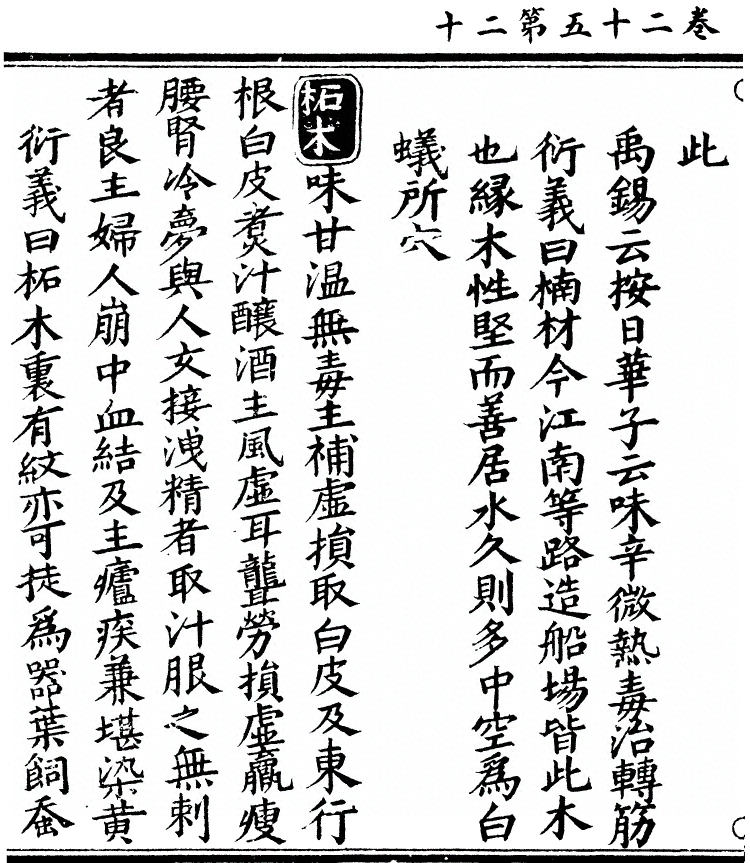 卷二十五第二十
此
禹錫云按日華子云味辛微熱毒治轉筋
衍義曰楠材今江南等路造船場皆此木
也縁木性堅而善居水久則多中空爲白
蟻所穴
柘木味甘温無毒主補虛損取白皮及東行
根白皮煑汁釀酒主風虛耳聾勞損虛羸瘦
腰腎冷夢與人女接洩精者取汁服之無刺
者良主婦人崩中血結及主瘧疾兼堪染黄
衍義曰柘木裏有紋亦可旋爲器葉飼蚕